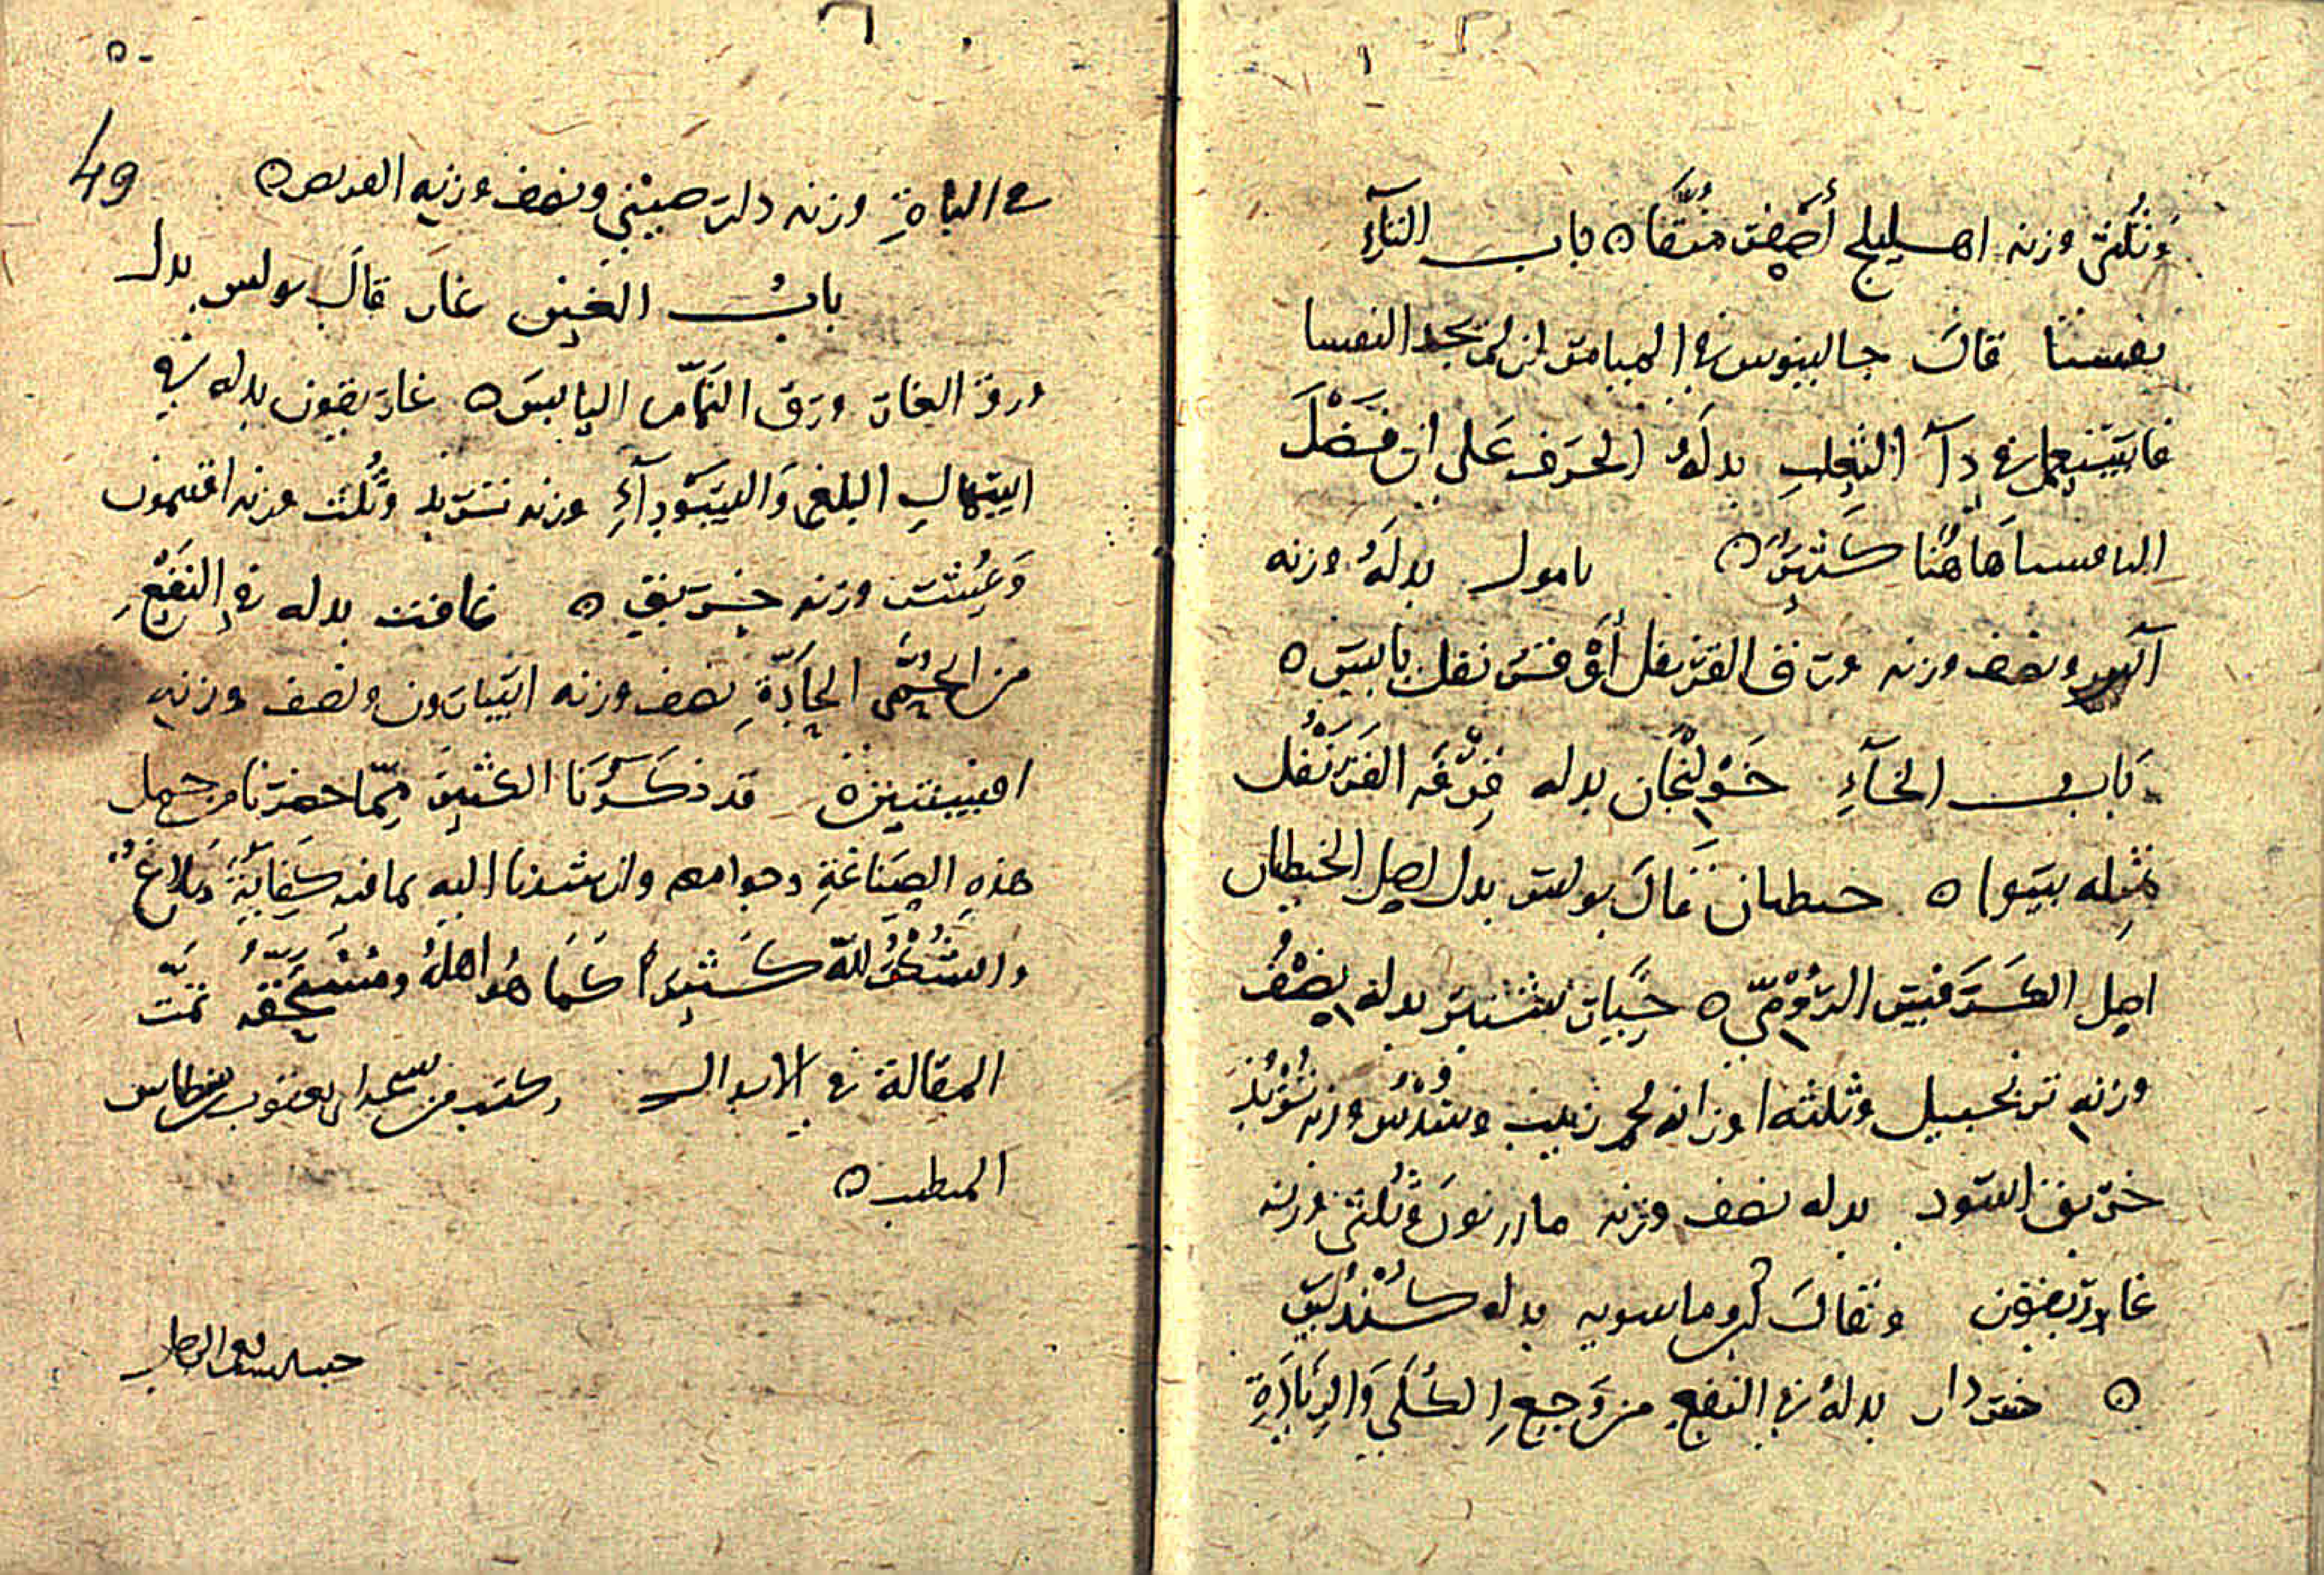 ١
وثلثي وزنه اهليلج أصفر منقا ه باب الثاء
ثفسيا قال جالينوس في الميامر لمن لم يجد الثفسيا
فاستعمل في دآ الثعلب بدله الحرف على ان فضل
الثافسيا هاهنا كثير ه بدله وزنه
ونصف وزنه ورق القرنفل أو قرنفل يابس ه
باب الخآء خولنجان بدله قرفة القرنفل
مثله سوا ه قال بولس بدل اصل
اصل الكرفس الرومي ه بدله نصف
وزنه زنجبيل وثلثة اوزانه لحم زبيب وسدس وزنه شوبذ
خربق اسود بدله نصف وزنه مازريون وثلثي وزنه
غاريقون وقال ابن ماسويه بدله كندس
ه بدله في النفع من وجع الكلى والزيادة
٥٠
49
في الباة وزنه دار صيني ونصف وزنه
باب الغين غار قال بولس بدل
ورق الغار ورق النمام اليابس ه غاريقون بدله في
اسهال البلغم والسودآء وزنه تربذ وثلث وزنه افتيمون
وعشر وزنه خربق ه غافت بدله في النفع
من الحمى الحادة نصف وزنه اسارون ونصف وزنه
افسنتين ه قد ذكرنا الكثير مما حضرنا من جمل
هذه الصناعة وجوامعه وارشدنا اليه بما فيه كفاية وبلاغ
والشكر لله كثيرا كما هو اهله ومستحقه تمت
المقالة في الابدال وكتب من
المطبب ه